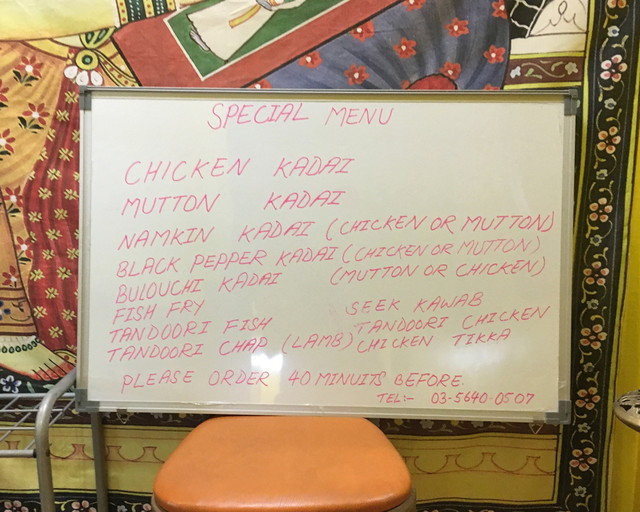 SPECIAL MENU
CHICKEN KADAI
MUTTON KADAI
NAMKIN KADAI (CHICKEN OR MUTTON)
BLACK PEPPER KADAI (CHICKEN OR MUTTON)
BULOUCHI KADAI (MUTTON OR CHICKEN)
FISH FRY SEEK KAWAB
TANDOORI FISH TANDOORI CHICKEN
TANDOORI CHAP (LAMB) CHICKEN TIKKA
PLEASE ORDER 40 MINUITS BEFORE.
TEL:- 03-5640-0507